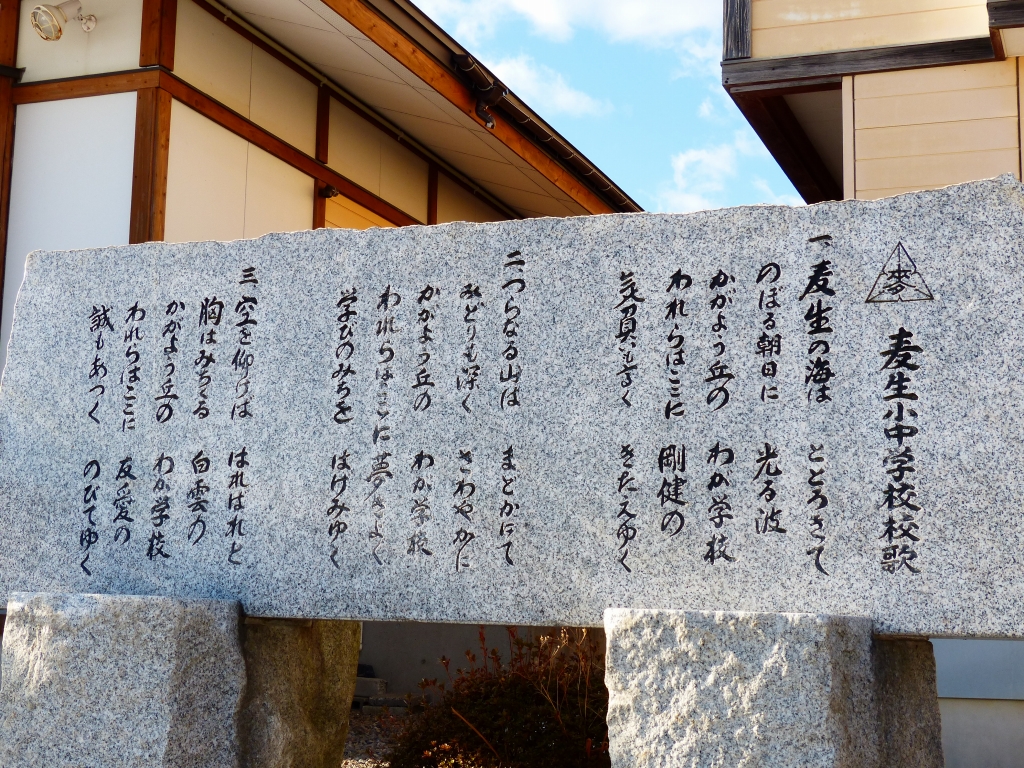 麦生小中学校校歌
一、麦生の海は とどろきて
のぼる朝日に 光る波
かがよう丘の わが学校
われらはここに 剛健の
気負も高く きたえゆく
二 つらなる山は まどかにて
みどりも深く さわやかに
かがよう丘の わが学校
われらはここに 夢きよく
学びのみちを はげみゆく
三 空を仰げば はればれと
胸はみちくる 白雲の
かがよう丘の わが学校
われらはここに 友愛の
誠もあつく のびてゆく